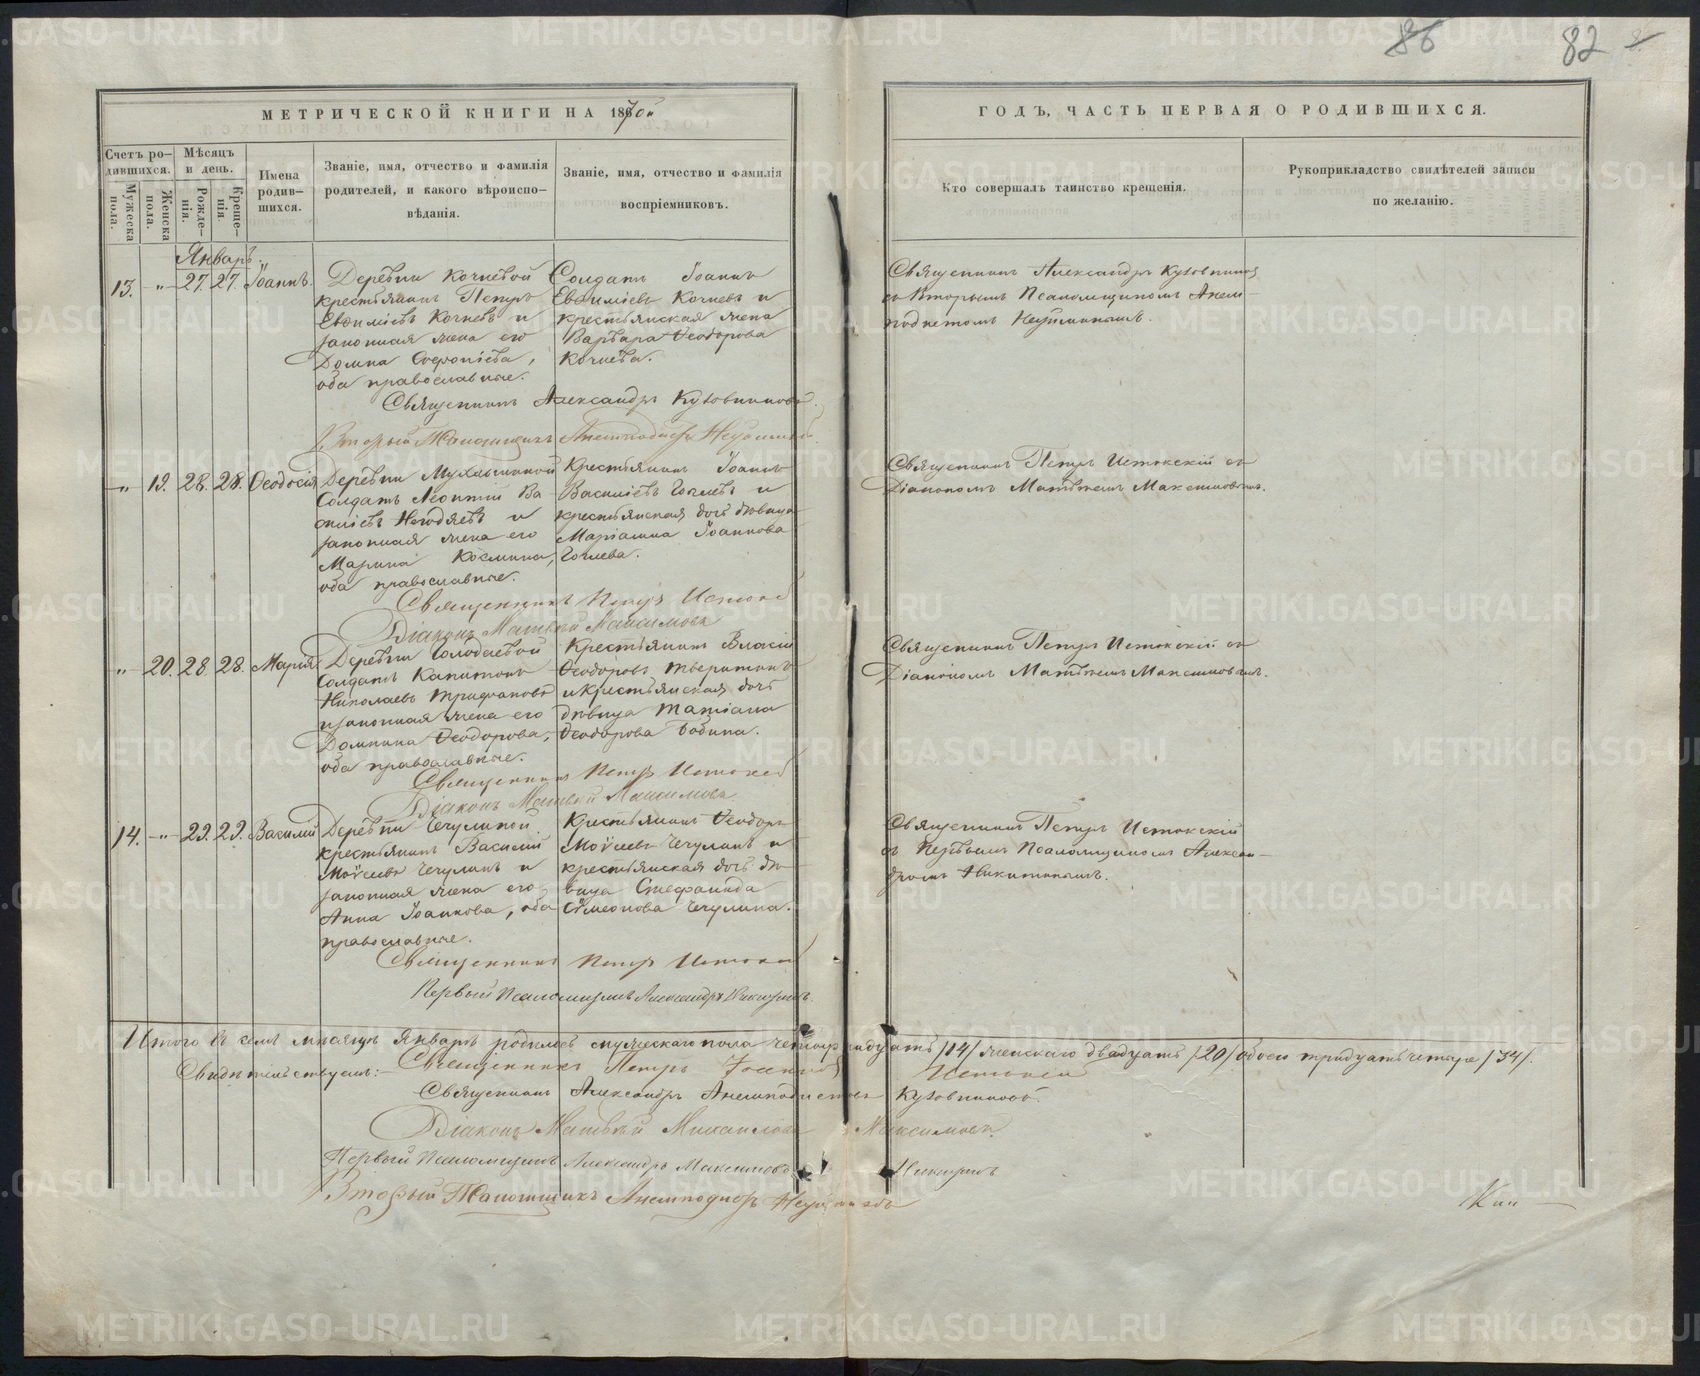 86 82
МЕТРИЧЕСКОЙ КНИГИ НА 1870й
Счетъ родившихся.
Мужеска пола.
Женска пола.
Мѣсяцъ и день.
Рожденія.
Крещенія.
Имена родившихся.
Званіе, имя, отчество и фамилія
родителей, и какого вѣроиспо-
вѣданія.
Званіе, имя, отчество и фамилія
воспріемниковъ.
Январь.
13. " 27. 27. Іоаннъ.
Деревни Кочневой
крестьянинъ Петръ
Евѳиміевъ Кочневъ и
законная жена его
Домна
оба православные.
Солдатъ Іоаннъ
Евѳиміевъ Кочневъ и
крестьянская жена
Варвара Ѳеодорова
Кочнева.
Священникъ Александръ
Второй Псаломщикъ Анемподистъ
" 19. 28. 28. Ѳеодосія
Деревни
Солдатъ Леонтій Ва
силіевъ и
законная жена его
Марина Космина,
оба православные.
Крестьянинъ Іоаннъ
Васильевъ и
крестьянская дочь дѣвица
Маріанна Іоаннова
Священникъ Петръ
Діаконъ Матвѣй Максимовъ
" 20. 28. 28. Марія
Деревни
Солдатъ Капитонъ
Николаевъ
и законная жена его
Домнина Ѳеодорова,
оба православные.
Крестьянинъ Власій
Ѳеодоровъ
и крестьянская дочь
дѣвица Татіана
Ѳеодорова Бабина.
Священникъ Петръ
Діаконъ Матвѣй Максимовъ
14. " 29. 29. Василій
Деревни Чечулиной
крестьянинъ Василій
Моѵсеевъ Чечулинъ и
законная жена его
Анна Іоаннова, оба
православные.
Крестьянинъ Ѳеодоръ
Моѵсеевъ Чечулинъ и
крестьянская дочь дѣ
вица Стефанида
Сѵмеонова Чечулина.
Священникъ Петръ
Первый Псаломщикъ Александръ Никитинъ.
Итого въ семъ мѣсяцѣ Январѣ родилось мужескаго пола четырнадцать /14/ женскаго двадцать /20/ обоего тридцать четыре /34/.
Свидѣтельствуемъ: Священникъ Петръ Истокскій
Священникъ Александръ Анемподистовъ
Діаконъ Матвѣй Михайловъ Максимовъ.
Первый Псаломщикъ Александръ Максимовъ Никитинъ
Второй Псаломщикъ Анемподистъ
ГОДЪ, ЧАСТЬ ПЕРВАЯ О РОДИВШИХСЯ.
Кто совершалъ таинство крещенія.
Рукоприкладство свидѣтелей записи
по желанію.
Священникъ Александръ
съ Вторымъ Псаломщикомъ Анем-
подистомъ
Священникъ Петръ Истокскій съ
Діакономъ Матвѣемъ Максимовымъ.
Священникъ Петръ Истокскій съ
Діакономъ Матвѣемъ Максимовымъ.
Священникъ Петръ Истокскій
съ Первымъ Псаломщикомъ Алексан-
дромъ Никитинымъ.
METRIKI.GASO-URAL.RU